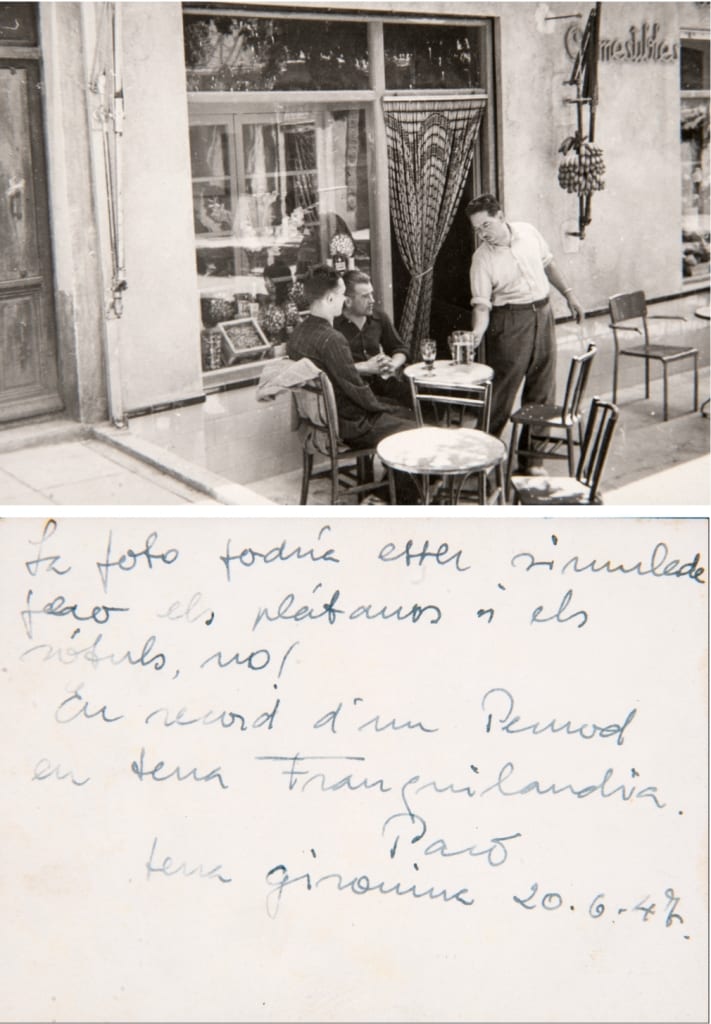 Comestibles
La foto podria esser simulada
pero els plátanos i els
rótuls, no!
En record d'un Pernod
en terra Franquilandia.
Paco
terra gironina 20.6.47.